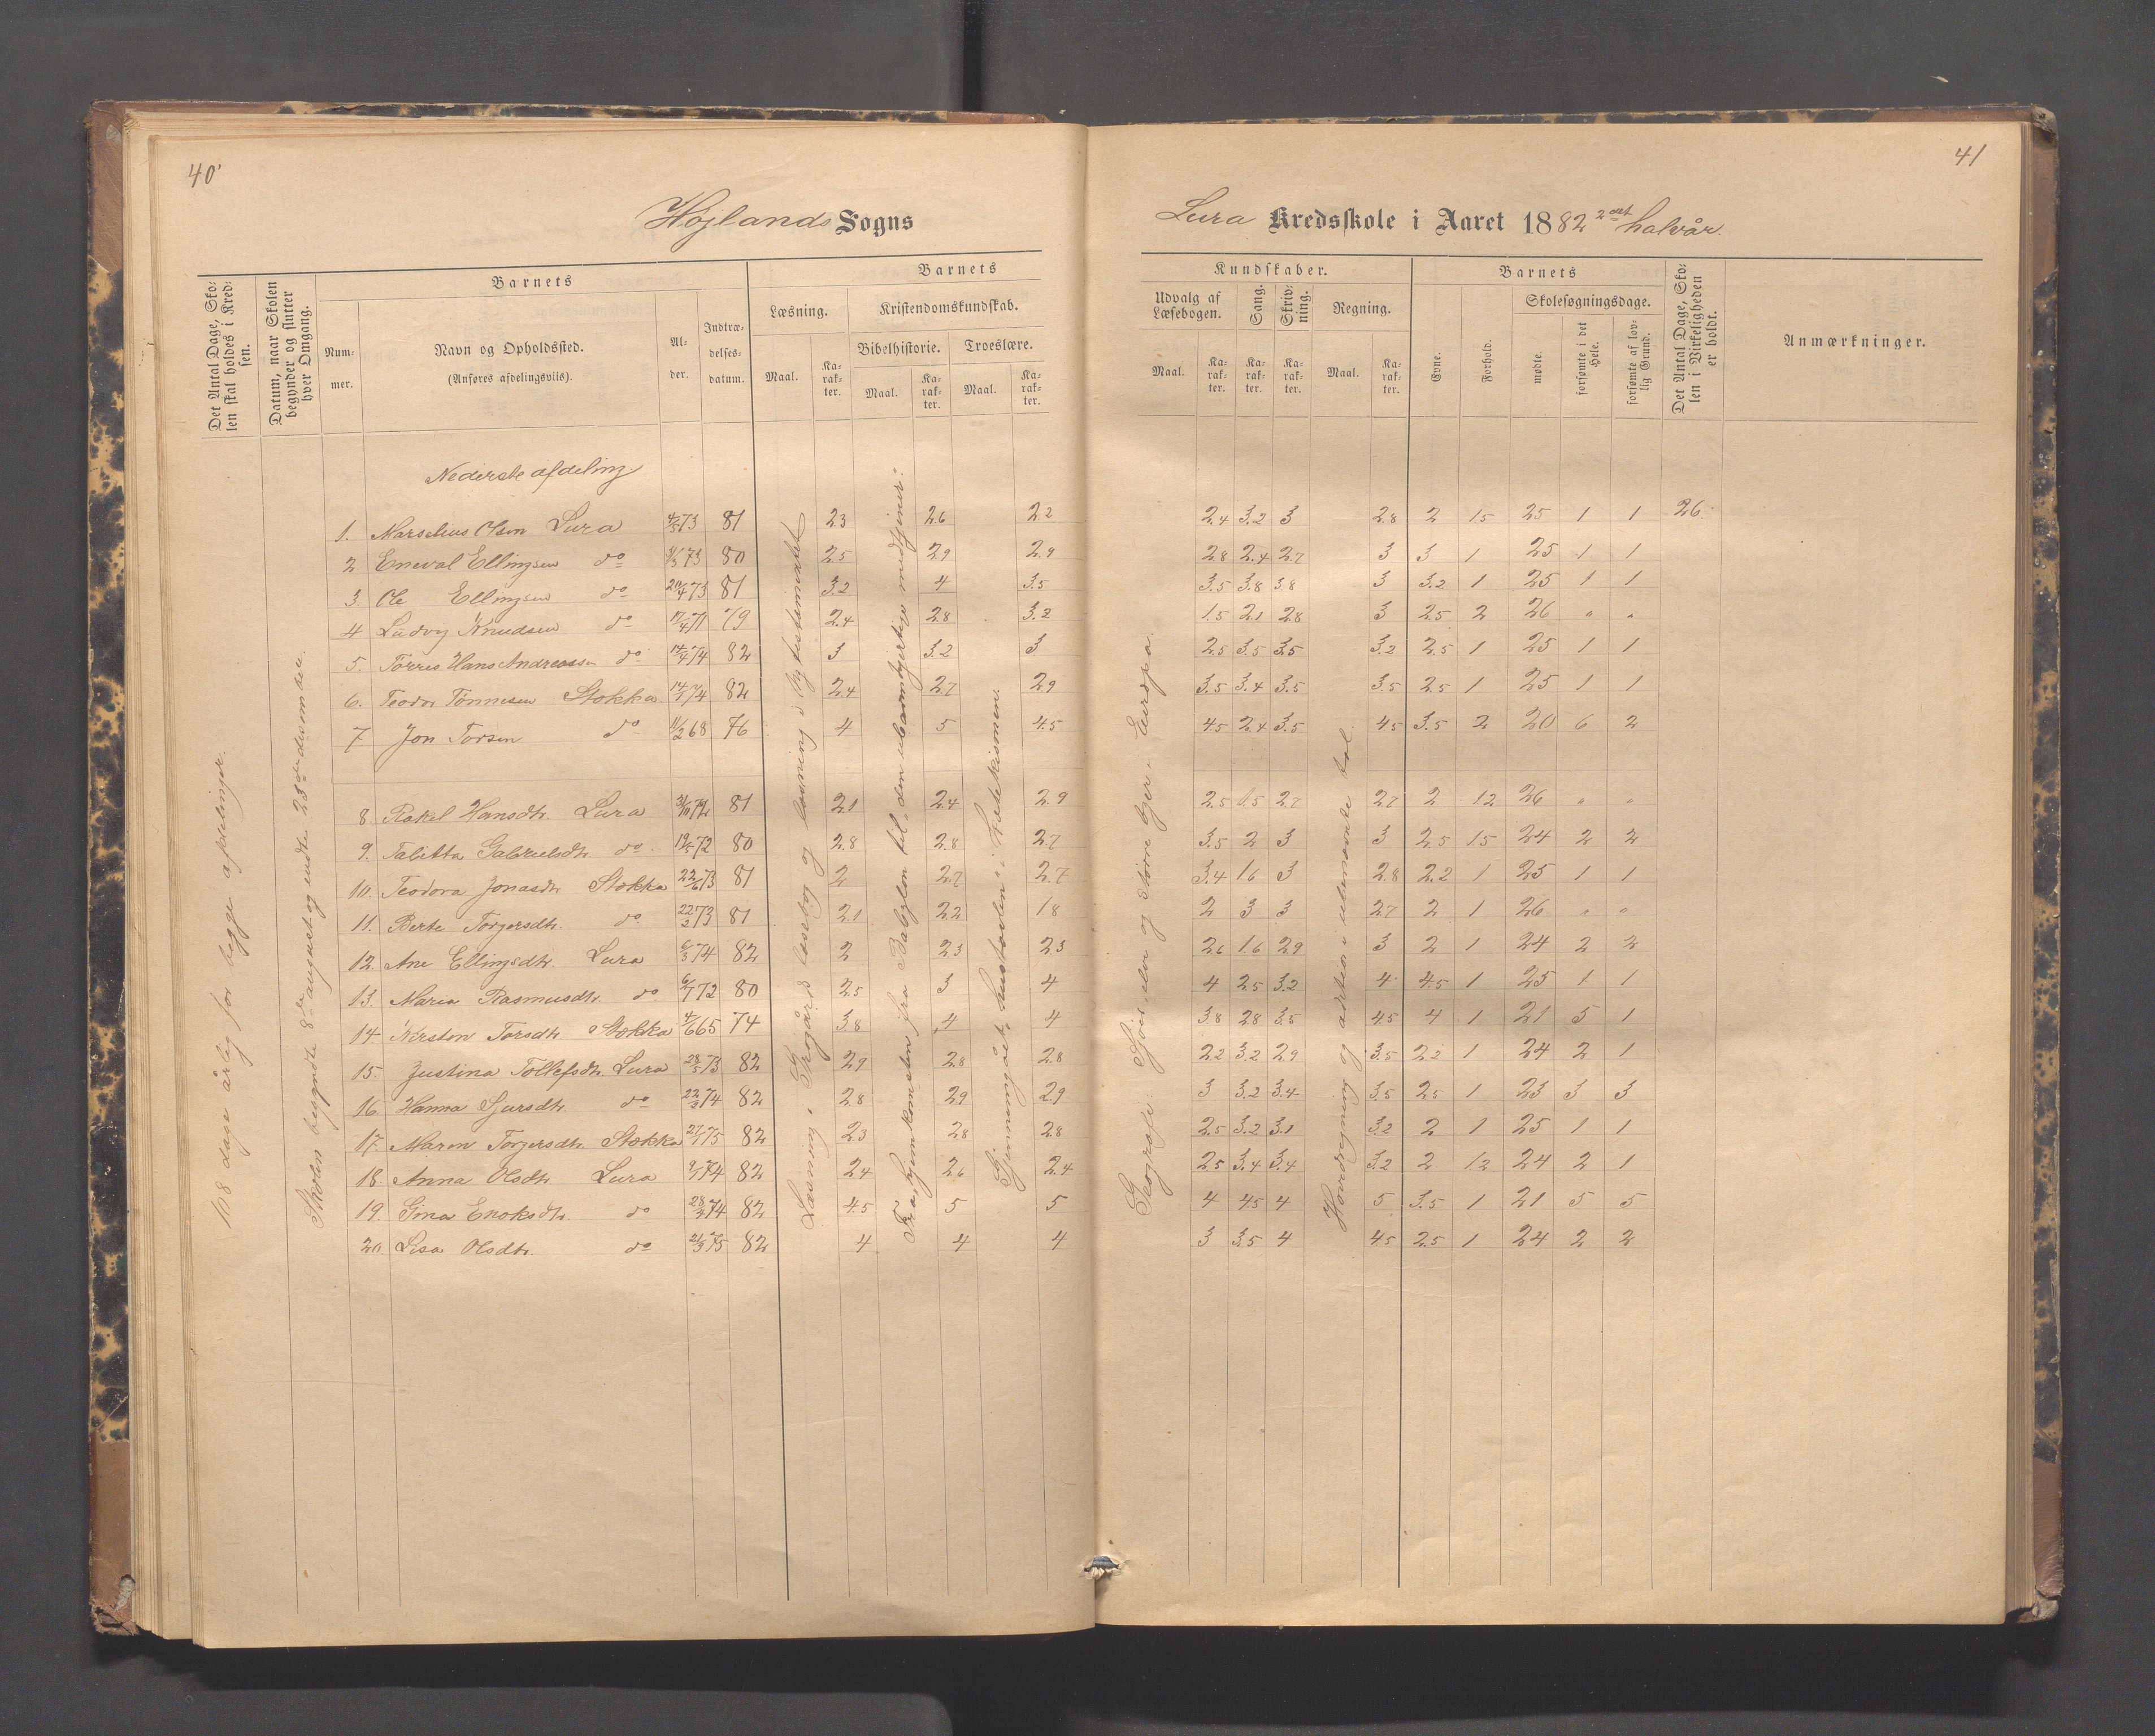 40
Højlands Sogns
Det Antal Dage, Skolen skal holdes i Kredsen.
Datum, naar Skolen begynder og slutter hver Omgang.
Barnets
Nummer.
Navn og Opholdssted.
(Anføres afdelingsviis).
Alder.
Indtrædelsesdatum.
Barnets
Læsning.
Kristendomskundskab.
Bibelhistorie. Troeslære.
Maal. Karakter. Maal. Karakter. Maal. Karakter.
108 dage årlig for begge afdelinger.
Skolen begyndte 8de august og endte 23de desember.
Nederste afdeling
1. Marselius Olsen Lura 4/5 73 81 2.3 2.6 2.2
2 Eneval Ellingsen do 73 80 2.5 2.9 2.9
3. Ole Ellingsen do 20/4 73 81 3.2 4 3.5
4 Ludvig Knudsen do 17/4 71 79 2.4 2.8 3.2
5. Torres Hans Andreassen do 14/4 74 82 3 3.2 3
6. Teodor Tönnesen Stokka 14/1 74 82 2.4 2.7 2.9
7 Jon Torsen do 11/2 68 76 4 5 4.5
8. Rakel Hansdtr. Lura 31/10 72 81 2.1 2.4 2.9
9. Tabitta Gabrielsdtr. do 19/5 72 80 2.8 2.8 2.7
10. Teodora Jonasdtr. Stokka 22/6 73 81 2 2.7 2.7
11. Berte Torgersdtr. do 22/2 73 81 2.1 2.2 1.8
12. Ane Ellingsdtr. Lura 6/3 74 82 2 2.3 2.3
13. Maria Rasmusdtr. do 6/7 72 80 2.5 3 4
14. Kirsten Torsdtr. Stokka 4/6 65 74 3.8 4 4
15. Justina Tollefsdtr. Lura 28/5 73 82 2.9 2.8 2.8
16. Hanna Sjursdtr. do 22/3 74 82 2.8 2.9 2.9
17. Maren Torgersdtr. Stokka 27/1 75 82 2.3 2.8 2.8
18. Anna Olsdtr. Lura 9/1 74 82 2.4 2.6 2.4
19. Gina Enoksdtr. do 28/2 74 82 4.5 5 5
20. Lisa Olsdtr. do 21/3 75 82 4 4 4
Læsning i Grøgårs læsebog og læsning i Ny testamentet
Fra hjemkomsten fra Babylon til „den ubarmhjertige medtjener“.
Gjennemgået hustavlen i Katekismen.
41
Lura Kredsskole i Aaret 1882 2det halvår.
Kundskaber.
Udvalg af Læsebogen.
Sang.
Skrivning.
Regning.
Barnets
Evne.
Forhold.
Skolesøgningsdage.
mødte.
forsømte i det Hele.
forsømte af lovlig Grund.
Det Antal Dage, Skolen i Virkeligheden er holdt.
Anmærkninger.
Maal. Karakter. Karakter. Karakter. Maal. Karakter.
Geografi: Søer, elve og større bjer i Europa.
Hovedregning og artier i ubenævnte tal.
2.4 3.2 3 2.8 2 1.5 25 1 1 26.
2.8 2.4 2.7 3 3 1 25 1 1
3.5 3.8 3.8 3 3.2 1 25 1 1
1.5 2.1 2.8 3 2.5 2 26 " "
2.5 3.5 3.5 3.2 2.5 1 25 1 1
3.5 3.4 3.5 3.5 2.5 1 25 1 1
4.5 2.4 3.5 4.5 3.5 2 20 6 2
2.5 1.5 2.7 2.7 2 1.2 26 " "
3.5 2 3 3 2.5 1.5 24 2 2
3.4 1.6 3 2.8 2.2 1 25 1 1
2 3 3 2.7 2 1 26 " "
2.6 1.6 2.9 3 2 1 24 2 2
4 2.5 3.2 4 4.5 1 25 1 1
3.8 2.8 3.5 4.5 4 1 21 5 1
2.2 3.2 2.9 3.5 2.2 1 24 2 1
3 3.2 3.4 3.5 2.5 1 23 3 3
2.5 3.2 3.1 3.2 2 1 25 1 1
2.5 3.4 3.4 3.2 2 1.2 24 2 1
4 4.5 4 5 3.5 1 21 5 5
3 3.5 4 4.5 2.5 1 24 2 2